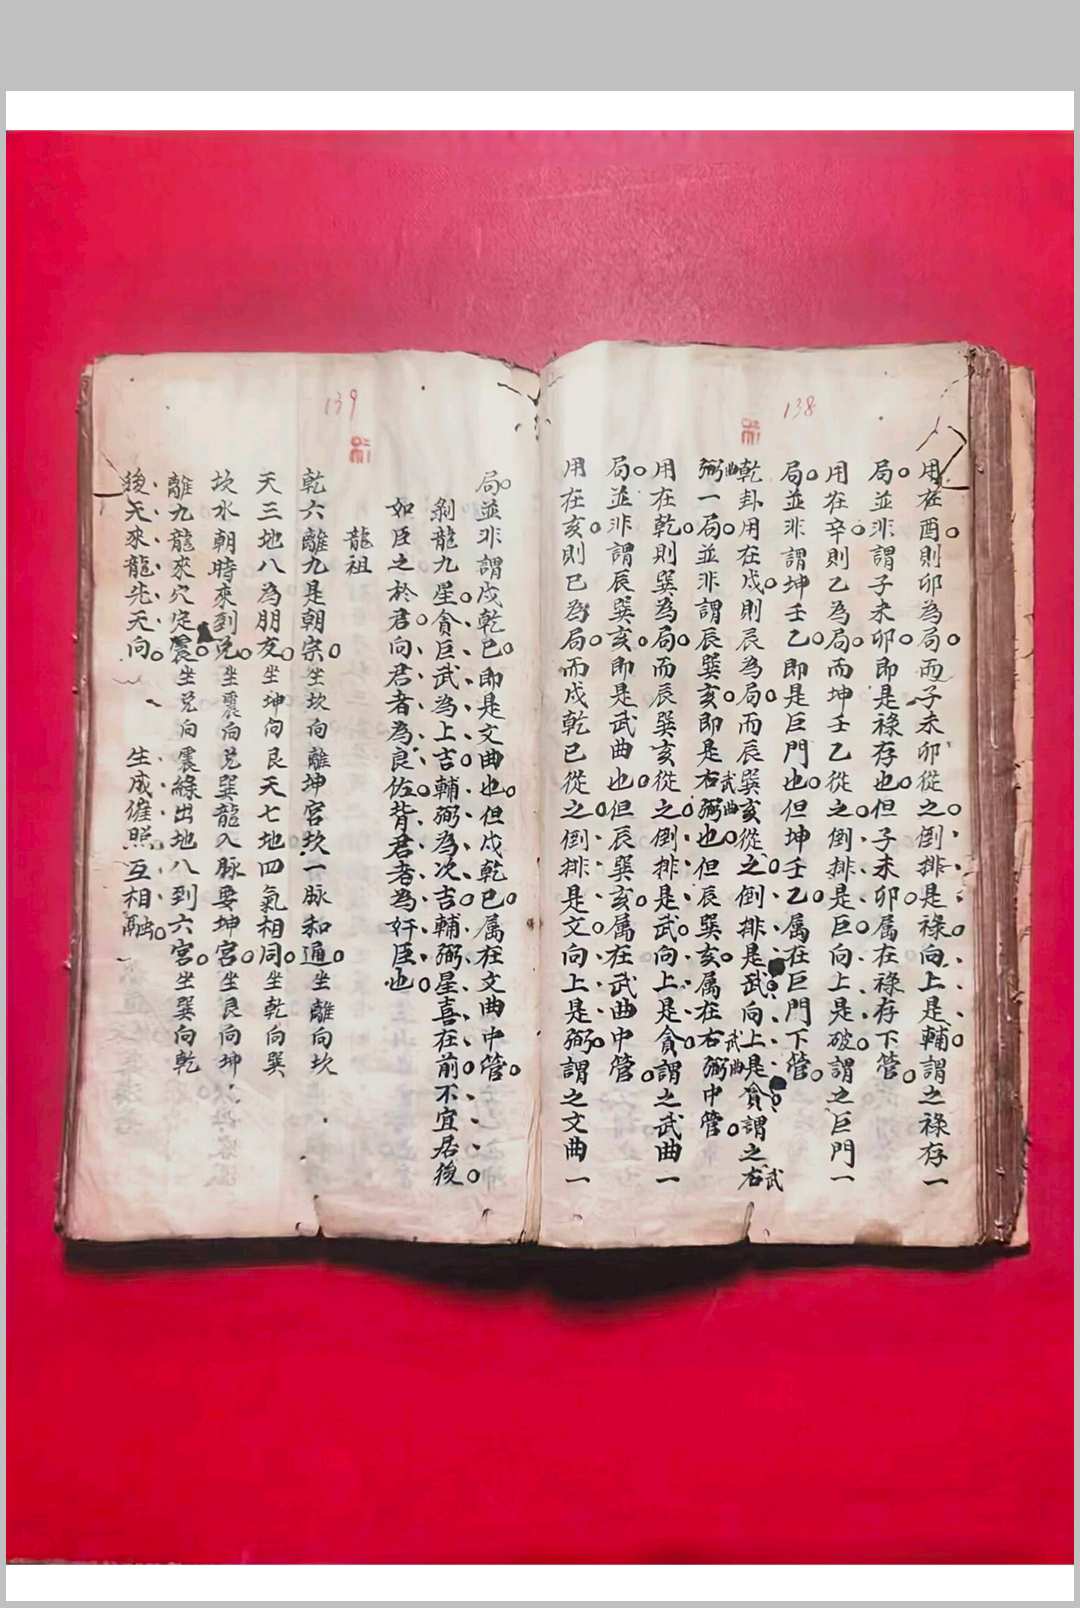 138
用在酉則卯為局而子未卯從之倒排是祿向上是輔謂之祿存一
局並非謂子未卯即是祿存也但子未卯属在祿存下管
用在辛則乙為局而坤壬乙從之倒排是巨向上是破謂之巨門一
局並非謂坤壬乙即是巨門也但坤壬乙属在巨門下管
乾卦用在戌則辰為局而辰巽亥從之倒排是武向上是貪謂之右武
弼曲一局並非謂辰巽亥即是右弼武曲也但辰巽亥属在右弼武曲中管
用在乾則巽為局而辰巽亥從之倒排是武向上是貪謂之武曲一
局並非謂辰巽亥即是武曲也但辰巽亥属在武曲中管
用在亥則巳為局而戌乾巳從之倒排是文向上是弼謂之文曲一
139
局並非謂戌乾巳即是文曲也但戌乾巳属在文曲中管
剝龍九星貪巨武為上吉輔弼為次吉輔弼星喜在前不宜居後
如臣之於君向君者為良佐背君者為奸臣也
龍祖
乾六離九是朝宗坐坎向離坤宮坎一脉和通坐離向坎
天三地八為朋友坐坤向艮天七地四氣相同坐乾向巽
坎水朝時來到兌坐震向兌巽龍入脉要坤宮坐艮向坤
離九龍來穴定震坐兌向震緣出地八到六宮坐巽向乾
後天來龍先天向 生成催照互相融